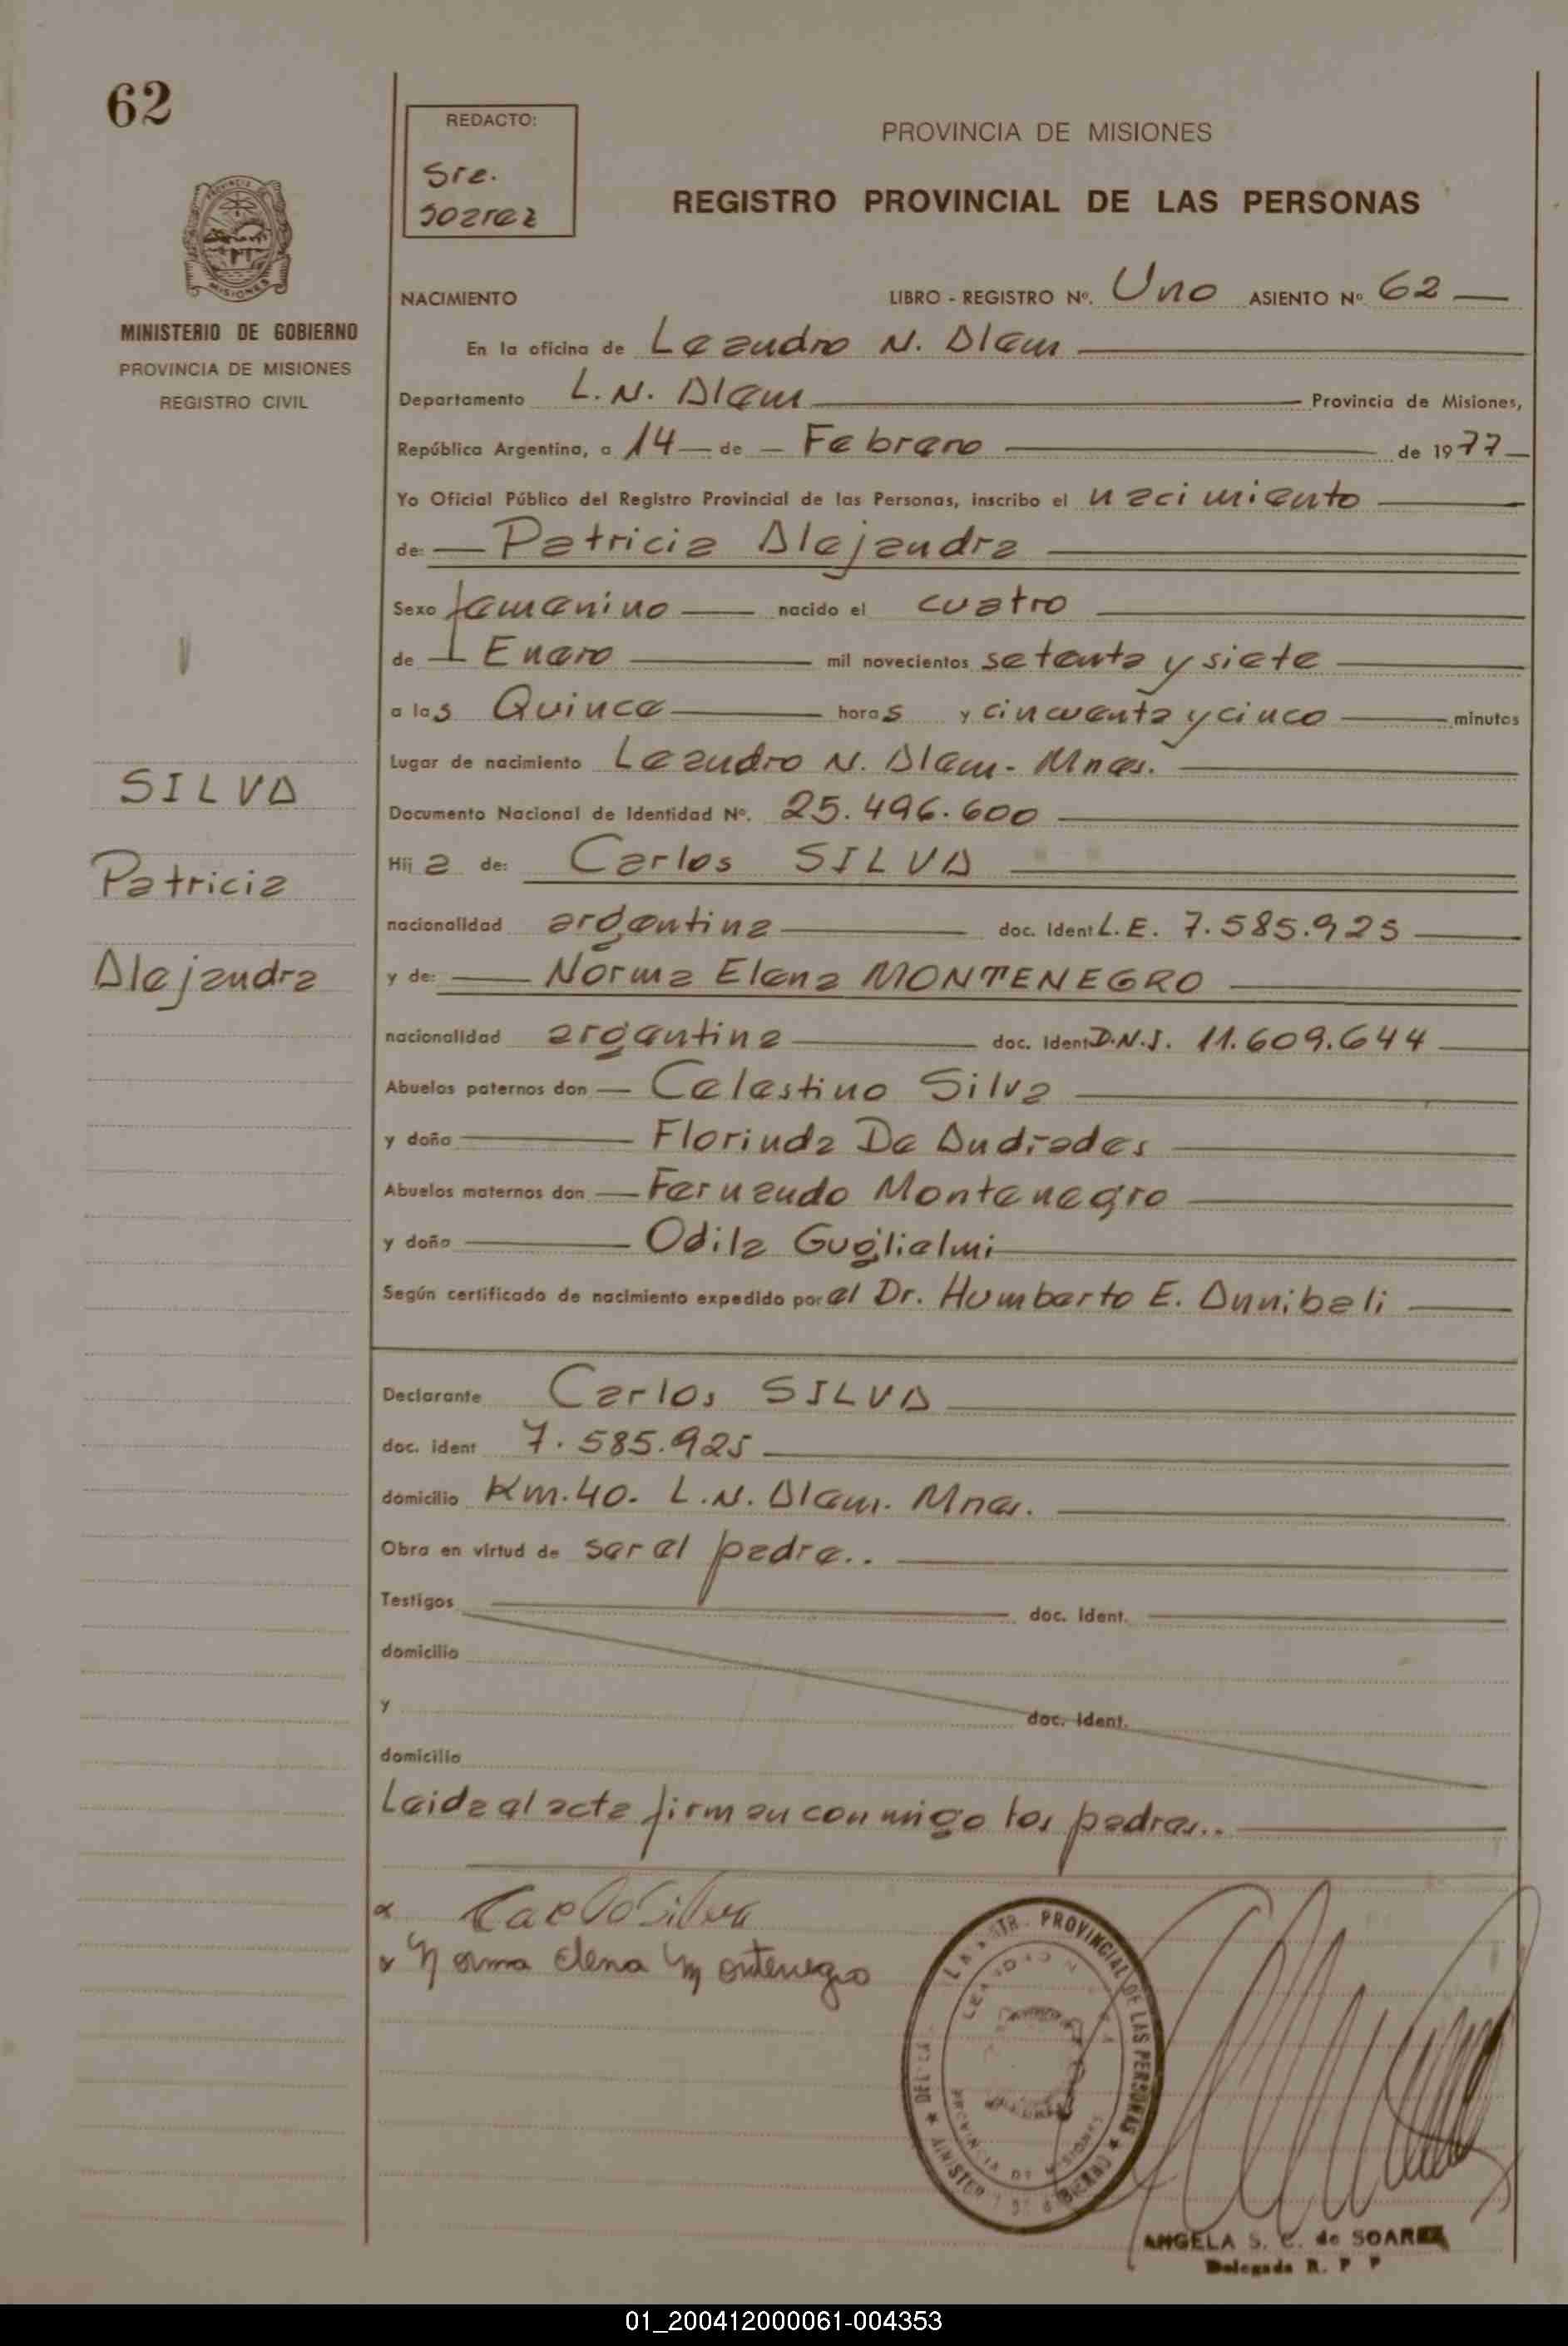 62
REDACTO:
Sra.
Soarez
PROVINCIA DE MISIONES
REGISTRO PROVINCIAL DE LAS PERSONAS
MISIONES
MINISTERIO DE GOBIERNO
PROVINCIA DE MISIONES
REGISTRO CIVIL
NACIMIENTO LIBRO - REGISTRO Nº. Uno ASIENTO Nº 62
En la oficina de Leandro N. Alem
Departamento L.N. Alem Provincia de Misiones,
República Argentina, a 14 de Febrero de 1977
Yo Oficial Público del Registro Provincial de las Personas, inscribo el nacimiento
de: Patricia Alejandra
Sexo femenino nacido el cuatro
de Enero mil novecientos setenta y siete
a las Quince horas y cincuenta y cinco minutos
Lugar de nacimiento Leandro N. Alem - Mnes.
Documento Nacional de Identidad Nº. 25.496.600
SILVA
Patricia
Alejandra
Hija de: Carlos SILVA
nacionalidad argentina doc. Ident L.E. 7.585.925
y de: Norma Elena MONTENEGRO
nacionalidad argentina doc. Ident D.N.I. 11.609.644
Abuelos paternos don Celestino Silva
y doña Florinda De Andrades
Abuelos maternos don Fernando Montenegro
y doña Odila Guglielmi
Según certificado de nacimiento expedido por el Dr. Humberto E. Annibali
Declarante Carlos SILVA
doc. ident 7.585.925
domicilio Km.40. L.N. Alem. Mnes.
Obra en virtud de ser el padre..
Testigos doc. Ident.
domicilio
y doc. Ident.
domicilio
Leida el acta firman conmigo los padres..
x Carlo Silva
x Norma Elena Montenegro
PROVINCIAL DE LAS PERSONAS
PROVINCIA DE MISIONES
ANGELA S. C. de SOAREZ
Delegada R. P P
01_200412000061-004353